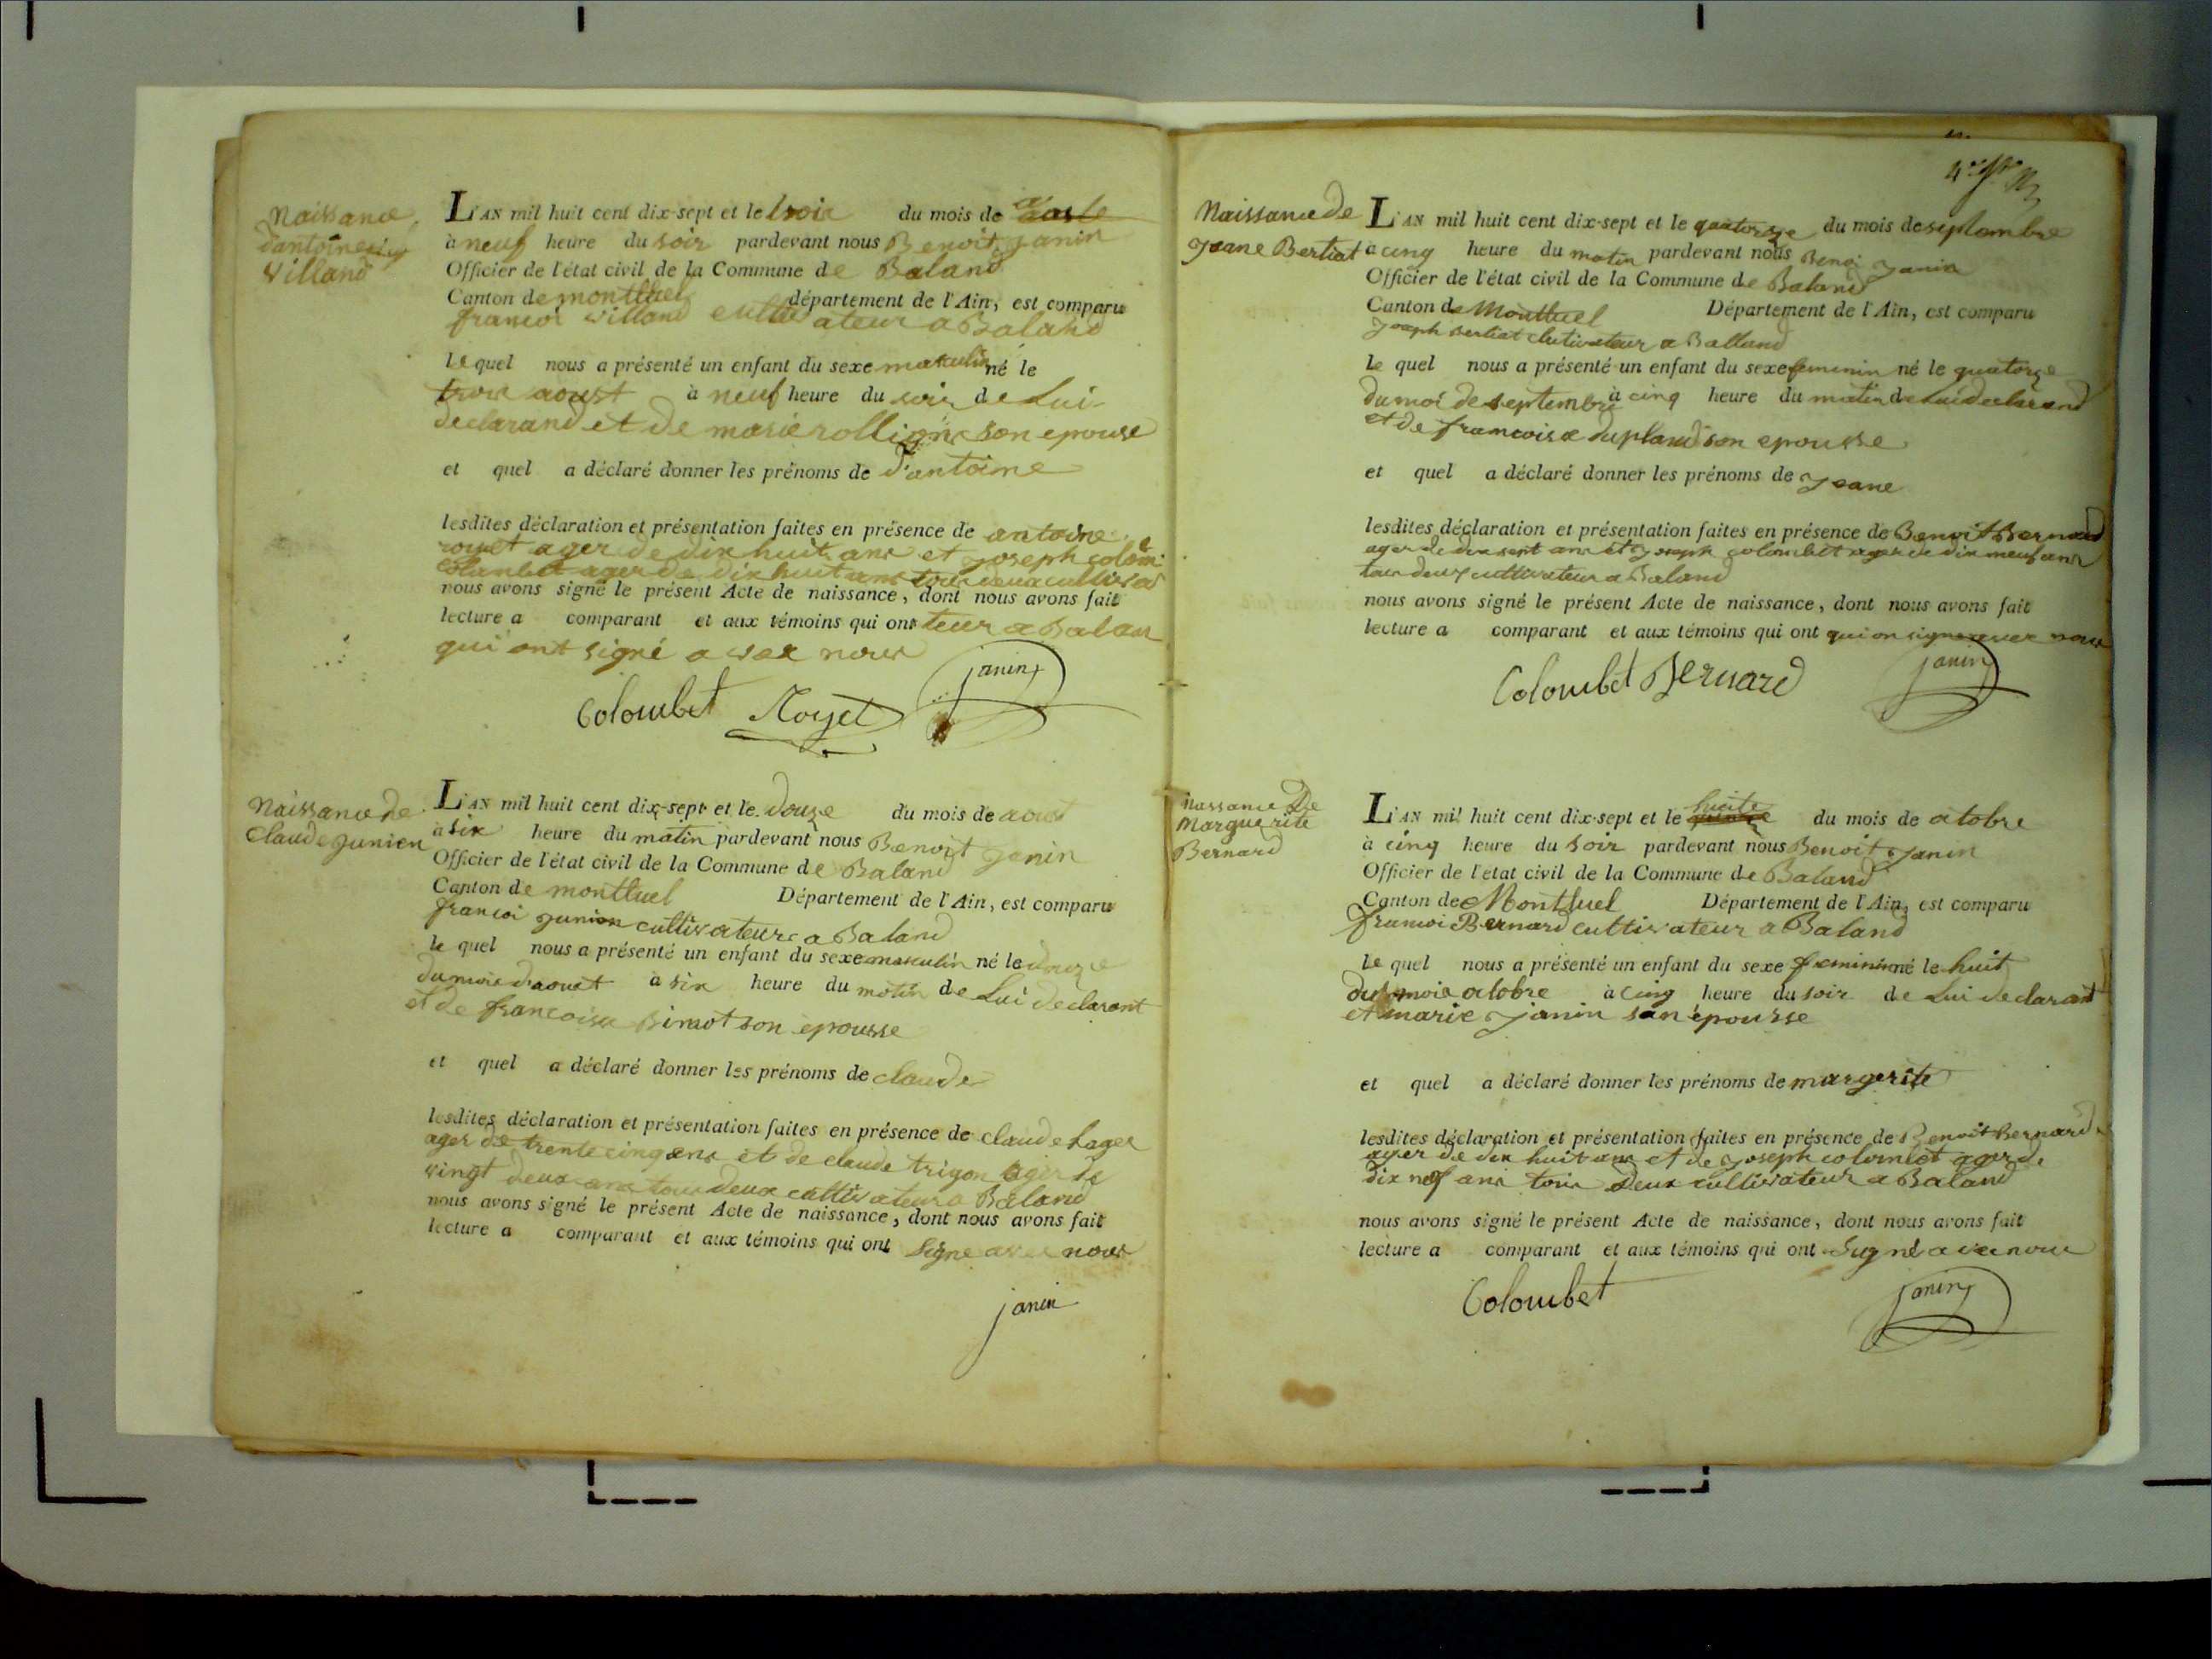 Naissance
d'antoine
Villand
L'AN mil huit cent dix-sept et le trois du mois de
à neuf heure du soir pardevant nous Benoit Janin
Officier de l'état civil de la Commune de Baland
Canton de montluel département de l'Ain, est comparu
francoi villand cultivateur a Baland
le quel nous a présenté un enfant du sexe masculin né le
trois aoust à neuf heure du soir de Lui
declarand et de marie rollion son epouse
et quel a déclaré donner les prénoms de d'antoine
lesdites déclaration et présentation faites en présence de antoine
royet ager de dix huit ans et joseph colom
colambet ager de dix huit ans tous deux cultiva
nous avons signé le présent Acte de naissance, dont nous avons fait
lecture a comparant et aux témoins qui ont teur a Balan
qui ont signé avec nous
janin
Colombet Royet
Naissance de
Claude Junien
L'AN mil huit cent dix-sept et le douze du mois de aout
à six heure du matin pardevant nous Benoit Janin
Officier de l'état civil de la Commune de Baland
Canton de montluel Département de l'Ain, est comparu
francoi Junion cultivateur a Baland
le quel nous a présenté un enfant du sexe masculin né le douze
du mois d'aoust à six heure du matin de Lui declarant
et de francoise son epousse
et quel a déclaré donner les prénoms de claude
lesdites déclaration et présentation faites en présence de claude Lager
ager de trente cinq ans et de claude trigon ager de
vingt deux ans tous deux cultivateur a Baland
nous avons signé le présent Acte de naissance, dont nous avons fait
lecture a comparant et aux témoins qui ont signe avec nous
janin
Naissance de
Jeane Bertiat
L'AN mil huit cent dix-sept et le quatorze du mois de septembre
à cinq heure du matin pardevant nous Benoi Janin
Officier de l'état civil de la Commune de Baland
Canton de Montluel Département de l'Ain, est comparu
Joseph Bertiat clutivateur a Balland
le quel nous a présenté un enfant du sexe feminin né le quatorze
du moi de septembre à cinq heure du matin de Lui declarand
et de francoise dupland son epousse
et quel a déclaré donner les prénoms de Jeane
lesdites déclaration et présentation faites en présence de Benoit Bernard
ager de dix sept ans et Joseph colombet ager de dix neuf ans
tous deux cultivateur a Baland
nous avons signé le présent Acte de naissance, dont nous avons fait
lecture a comparant et aux témoins qui ont qui on signe avec nous
janin
Colombet Bernard
Naissance De
Marguerite
Bernard
huite
L'AN mil huit cent dix-sept et le du mois de atobre
à cinq heure du soir pardevant nous Benoit Janin
Officier de l'état civil de la Commune de Baland
Canton de Montluel Département de l'Ain, est comparu
francoi Bernard cultivateur a Baland
le quel nous a présenté un enfant du sexe feminin né le huit
du mois atobre à cinq heure du soir de Lui declarant
et marie Janin son épousse
et quel a déclaré donner les prénoms de margerite
lesdites déclaration et présentation faites en présence de Benoit Bernard
ager de dix huit ans et de Joseph colombet ager de
dix nef ans tous deux cultivateur a Baland
nous avons signé le présent Acte de naissance, dont nous avons fait
lecture a comparant et aux témoins qui ont Signé avec nous
Colombet janin